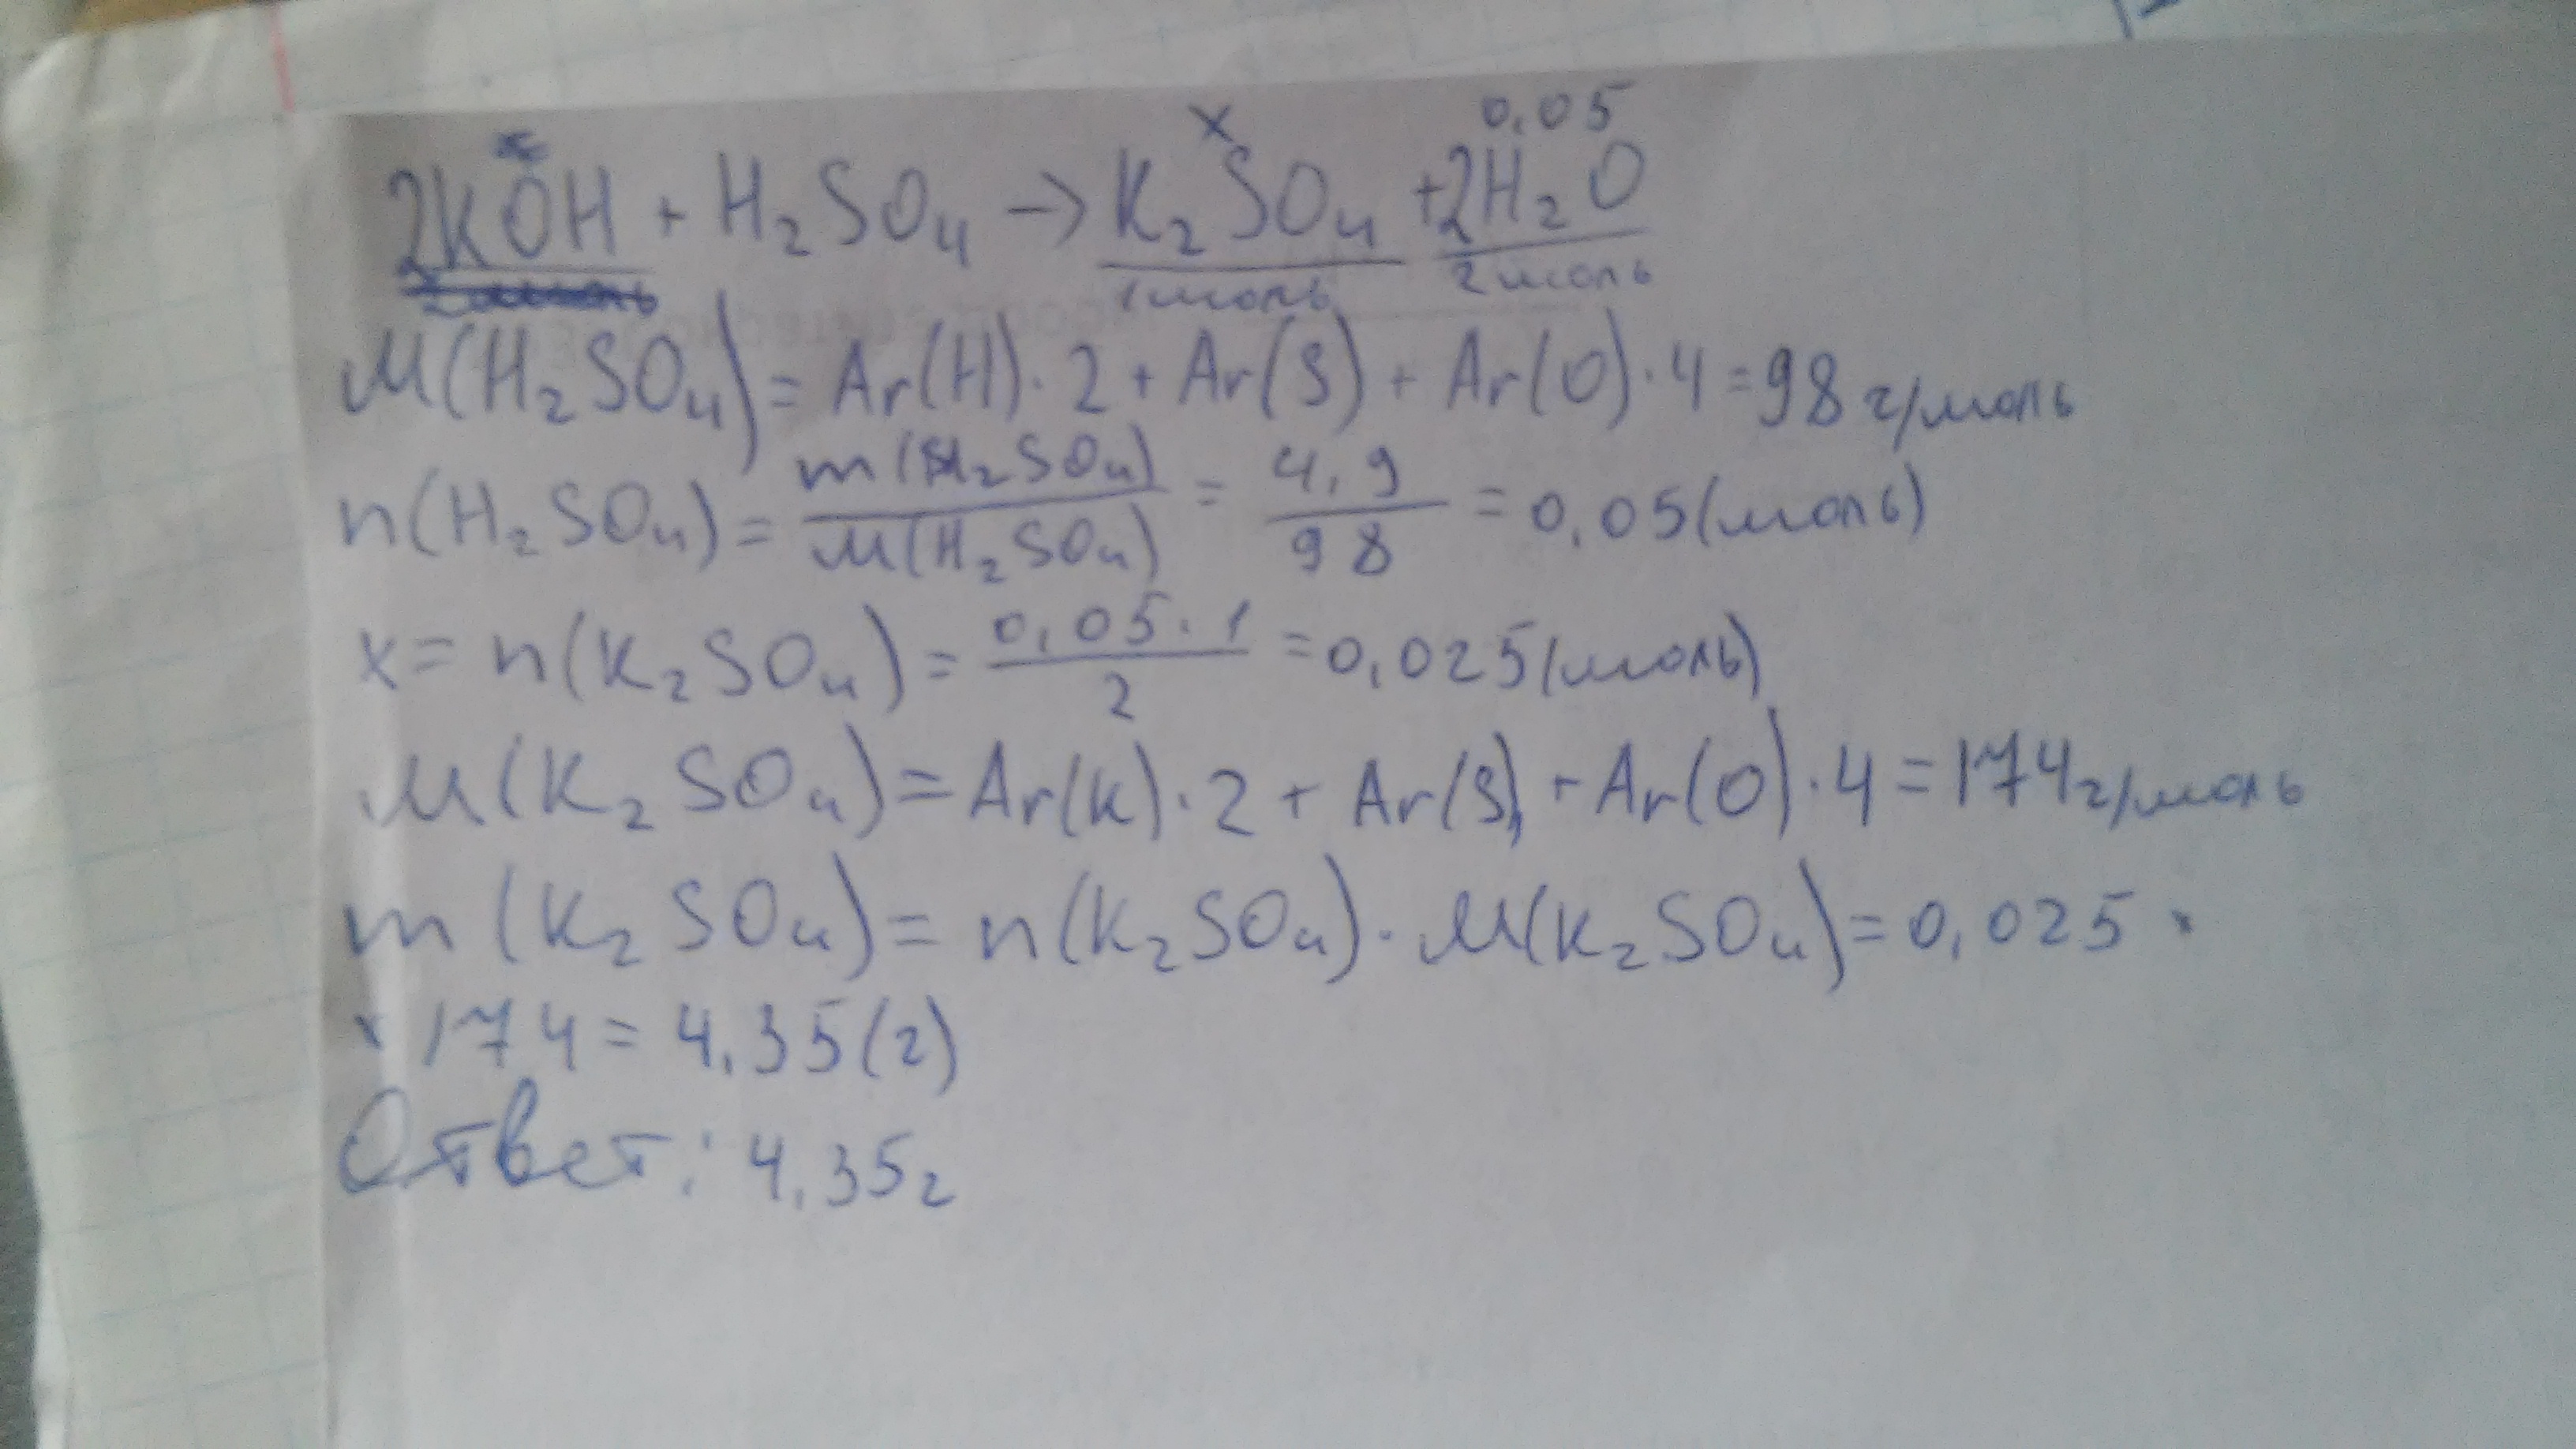 x 0,05
2KOH + H₂SO₄ → K₂SO₄ + 2H₂O
1моль 2моль
M(H₂SO₄) = Ar(H)·2 + Ar(S) + Ar(O)·4 = 98 г/моль
n(H₂SO₄) = m(H₂SO₄) / M(H₂SO₄) = 4,9 / 98 = 0,05(моль)
x = n(K₂SO₄) = 0,05·1 / 2 = 0,025(моль)
M(K₂SO₄) = Ar(K)·2 + Ar(S) + Ar(O)·4 = 174 г/моль
m(K₂SO₄) = n(K₂SO₄)·M(K₂SO₄) = 0,025 ·
· 174 = 4,35(г)
Ответ: 4,35г